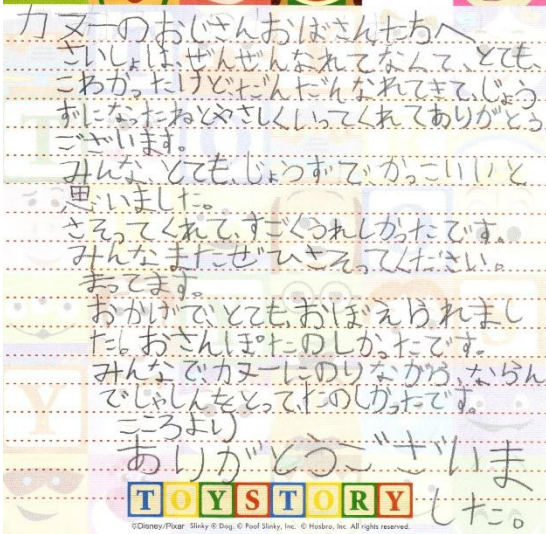 カヌーのおじさんおばさんたちへ
さいしょは、ぜんぜんなれてなくて、とても、
こわかったけど、だんだんなれてきて、じょう
ずになったねとやさしくいってくれてありがとう
ございます。
みんな、とても、じょうずで、かっこいいと
思いました。
さそってくれて、すごくうれしかったです。
みんなまたぜひさそってください。
まってます。
おかげで、とても、おぼえられまし
た。おさんぽたのしかったです。
みんなで、カヌーにのりながら、ならん
でしゃしんをとって、たのしかったです。
こころより
ありがとうございま
した。
TOYSTORY
©Disney/Pixar Slinky ® Dog. © Poof Slinky, Inc. © Hasbro, Inc. All rights reserved.